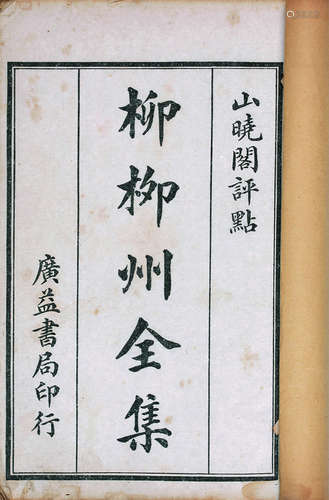 山曉閣評點
柳柳州全集
廣益書局印行